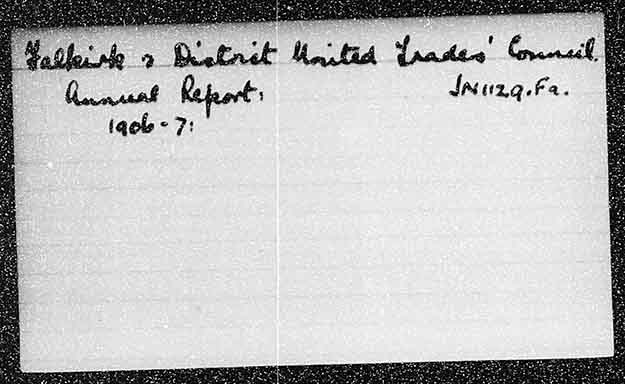 Falkirk & District United Trades' Council.
Annual Report: JN1129.Fa.
1906-7: